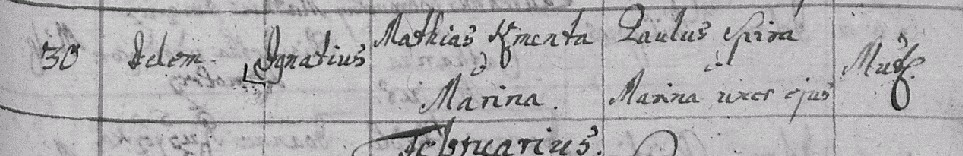 30 Idem Ignatius Mathias Kmenta Paulus Spira
Marina. Marina uxor ejus
Februarius.